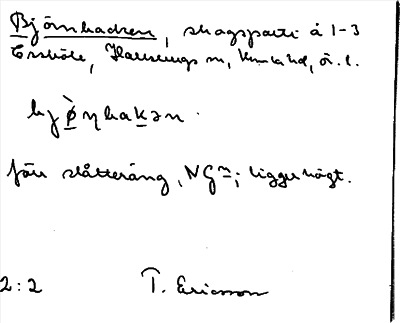 Björnhacken, skogsparti å 1-3
Ersböle, Hälsings m, Kumla hd, Ö.l.
bjø̀ŋhakən.
förr slåtteräng, NG~; ligger högt.
2:2 T. Ericsson